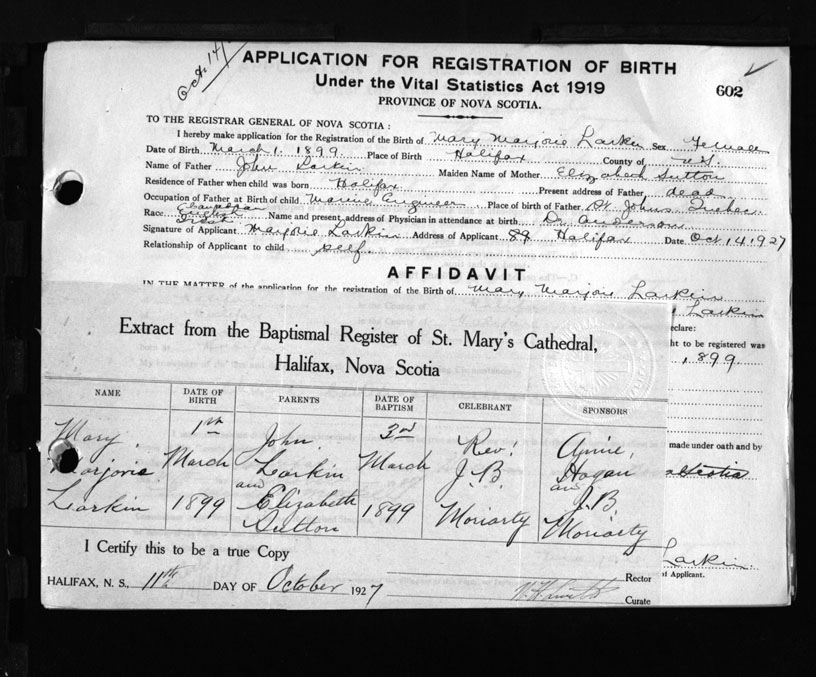 Oct. 14/
APPLICATION FOR REGISTRATION OF BIRTH
Under the Vital Statistics Act 1919
602
PROVINCE OF NOVA SCOTIA.
TO THE REGISTRAR GENERAL OF NOVA SCOTIA :
I hereby make application for the Registration of the Birth of Mary Marjorie Larkin Sex Female
Date of Birth March 1. 1899 Place of Birth Halifax County of
Name of Father John Larkin Maiden Name of Mother Elizabeth Sutton
Residence of Father when child was born Halifax Present address of Father dead
Occupation of Father at Birth of child Marine Engineer Place of birth of Father St. Johns Quebec
Race English Name and present address of Physician in attendance at birth Dr Anderson
Signature of Applicant Marjorie Larkin Address of Applicant 89 Halifax Date Oct 14 1927
Relationship of Applicant to child self.
AFFIDAVIT
IN THE MATTER of the application for the registration of the Birth of Mary Marjorie Larkin
Larkin
eclare:
ht to be registered was
, 1899
Extract from the Baptismal Register of St. Mary's Cathedral,
Halifax, Nova Scotia
NAME DATE OF BIRTH PARENTS DATE OF BAPTISM CELEBRANT SPONSORS
Mary 1st John 3rd Rev. Annie
Marjorie March Larkin March J.B. Hogan
and and
Larkin 1899 Elizabeth 1899 Moriarty J.B.
Sutton Moriarty
made under oath and by
Scotia
I Certify this to be a true Copy
Larkin
Rector
of Applicant.
HALIFAX, N. S., 11th DAY OF October 1927
Curate